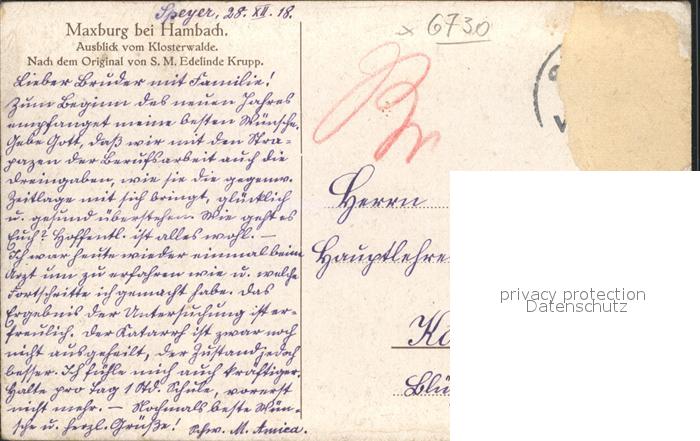 Speyer, 28. XII. 18.
Maxburg bei Hambach.
Ausblick vom Klosterwalde.
Nach dem Original von S. M. Edelinde Krupp.
Lieber Bruder mit Familie!
Zum Beginn des neuen Jahres
empfanget meine besten Wünsche.
Gebe Gott, daß wir mit den Stra-
pazen der Berufsarbeit auch die
Dreingaben, wie sie die gegenw.
Zeitlage mit sich bringt, glücklich
u. gesund überstehen. Wie geht es
Euch? Hoffentl. ist alles wohl. —
Ich war heute wieder einmal beim
Arzt um zu erfahren wie u. welche
Fortschritte ich gemacht habe. Das
Ergebnis der Untersuchung ist er-
freulich. Der Katarrh ist zwar noch
nicht ausgeheilt, der Zustand jedoch
besser. Ich fühle mich auch kräftiger.
Halte pro Tag 1 Std. Schule, vorerst
nicht mehr. — Nochmals beste Wün-
sche u. herzl. Grüße! Schw. M. Amica.
x 6730
Herrn
Hauptlehre
Blü
privacy protection
Datenschutz